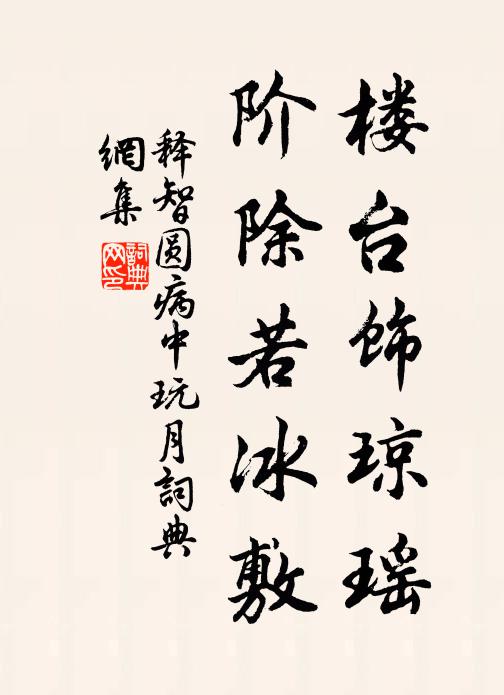 楼台饰琼瑶
阶除若冰敷
释智圆病中玩月詞典
網集
詞典網印